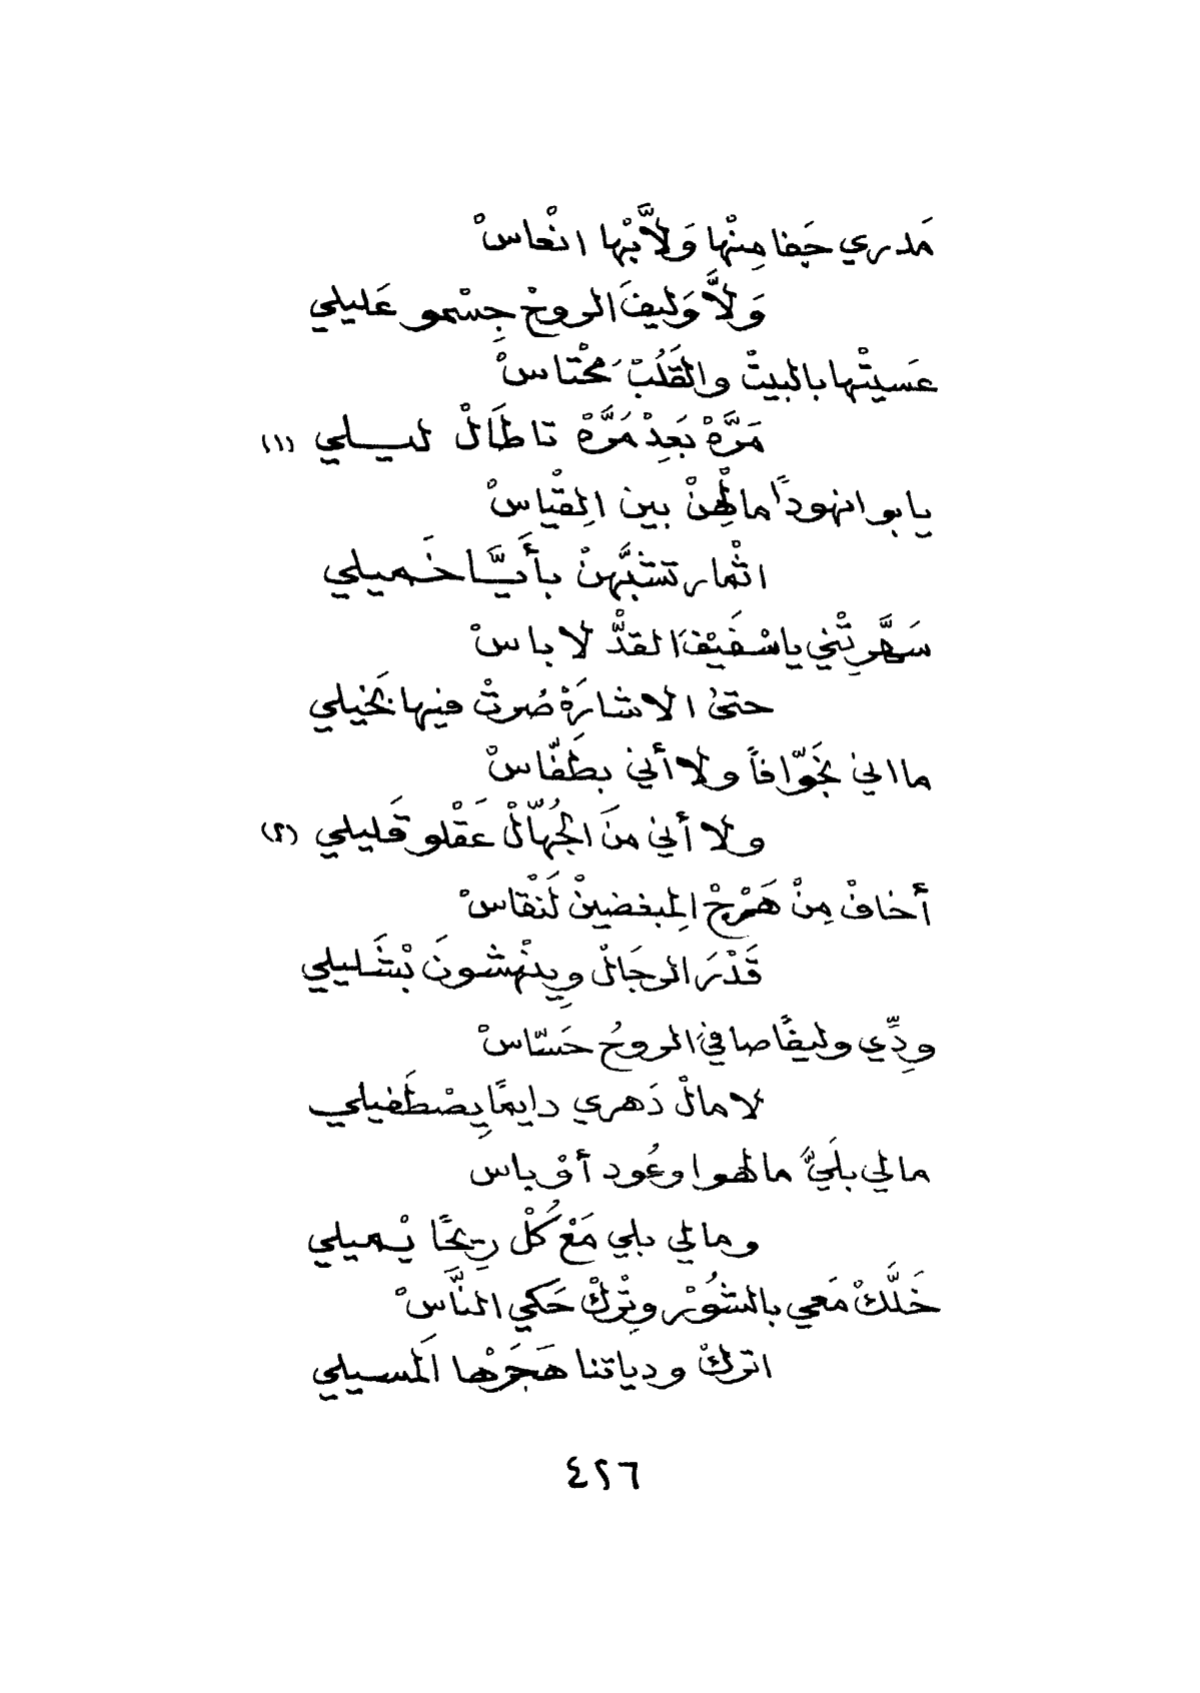 مَدري جَفا مِنْها وَلاَّ بْها انْعاسْ
وَلاَّ وَليفَ الروحْ جِسْمو عَليلي
عَسيتْها بالبيتْ والقَلُبْ مَحْتاسْ
مَرَّهْ بَعِدْ مَرَّهْ تا طَالْ ليـلي (١)
يا بو انهودًا مالْهِنْ بين المِقْياسْ
اثْمار تشبَّهنْ بأَيَّا خَميلي
سَهَّرِتْني يا سْفَيْفَ القدّْ لا باسْ
حتىٰ الاشارَهْ صُرتْ فيها بَخيلي
ما اني بخَوّافاً ولا أني بطَفّاسْ
ولا أني منَ الجُهّالْ عَقْلو قَليلي (٢)
أخافْ مِنْ هَرْجْ المِبغضينْ لَنْقاسْ
قَدْرَ الرجَالْ ويِنْهشونَ بْشَليلي
ودِّي وليفًا صافيَ الروحُ حَسّاسْ
لا مالْ دَهري دايمًا يِصْطَفيلي
مالي بلَيٍّ مالهوا وعُود أوْ باسْ
ومالي بلي مَعْ كُلْ ريحًا يْميلي
خَلَّكْ مَعي بالشُوْر وتِرْكْ حَكي النَّاسْ
اتركْ ودياتنا هَجَرْها المَسيلي
٤٢٦